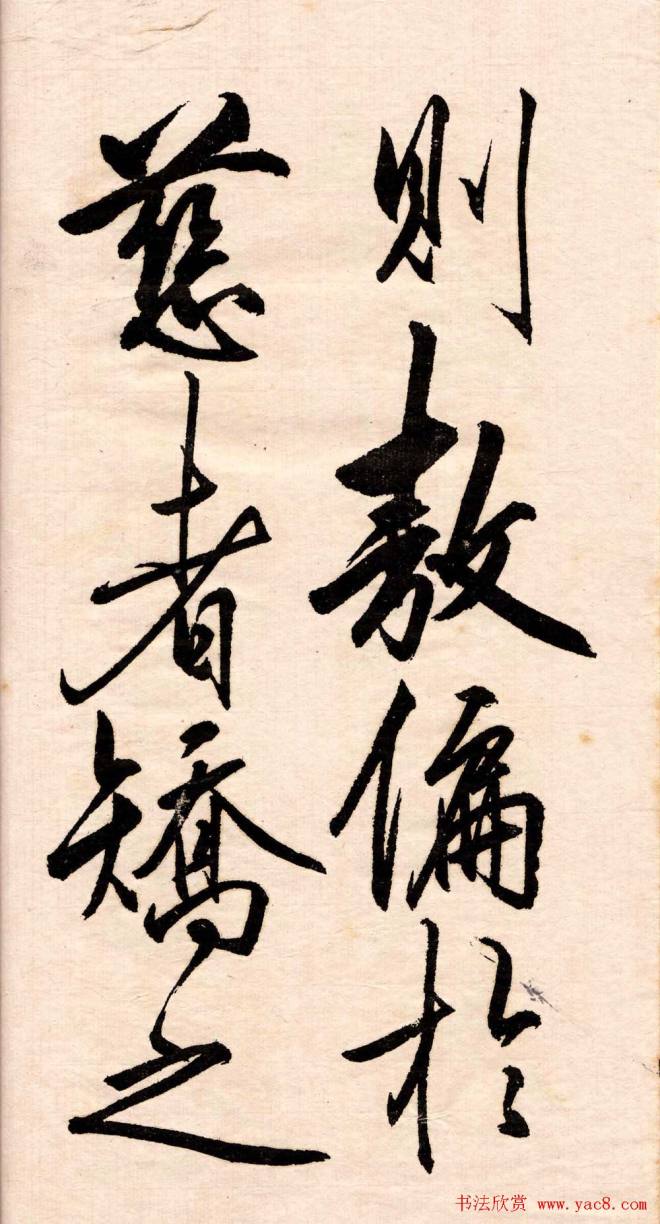 則敖偏於
慈者矯之
书法欣赏 www.yac8.com